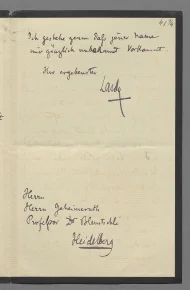 4/14
Ich gestehe gerne daß jener Name
mir gänzlich unbekannt vorkommt.
Ihr ergebenster
Lardy
Herrn
Herrn Geheimerath
Professor Dr Bluntschli
Heidelberg